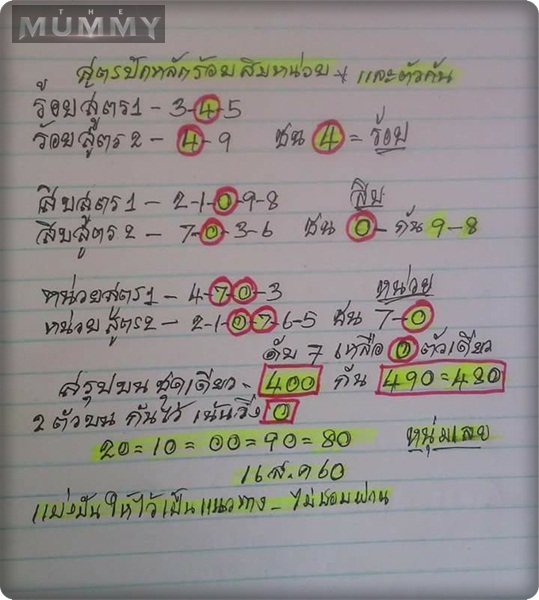 THE
MUMMY
สูตรปักหลักร้อยสิบหน่วย + และตัวกัน
ร้อยสูตร1 - 3-4-5
ร้อยสูตร2 - 4-9 ชน 4 = ร้อย
สิบสูตร1 - 2-1-0-9-8 สิบ
สิบสูตร2 - 7-0-3-6 ชน 0 - กัน 9-8
หน่วยสูตร1 - 4-7-0-3 หน่วย
หน่วยสูตร2 - 2-1-0-7-6-5 ชน 7-0
ดับ 7 เหลือ 0 ตัวเดียว
สรุปบนชุดเดียว - 400 กัน 490=480
2 ตัวบน กันไว้ เน้นวิ่ง 0
20=10=00=90=80 หนุ่มเลย
16 ส.ค 60
แบ่งปันให้ไว้เป็นแนวทาง - ไม่ชอบผ่าน